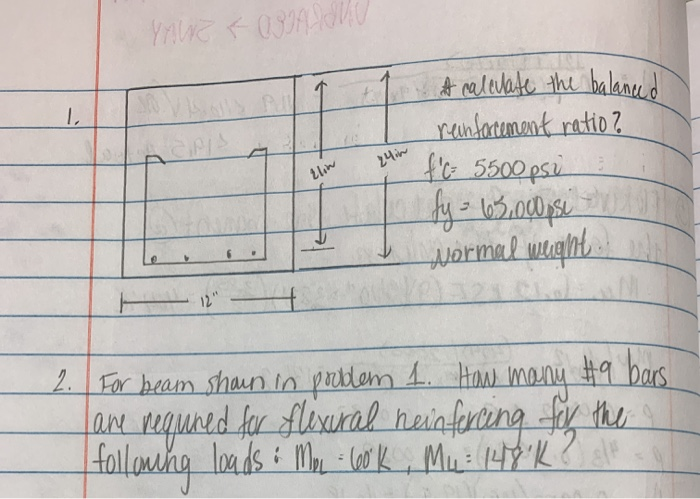 UNBRACED → 2WAY
1.
* calculate the balanced
reinforcement ratio?
21in
24in
f'c= 5500 psi
fy = 65,000 psi
Normal weight
12"
2. For beam shown in problem 1. How many #9 bars
are required for flexural reinforcing for the
following loads: MDL = 60'K, MLL= 148'K?